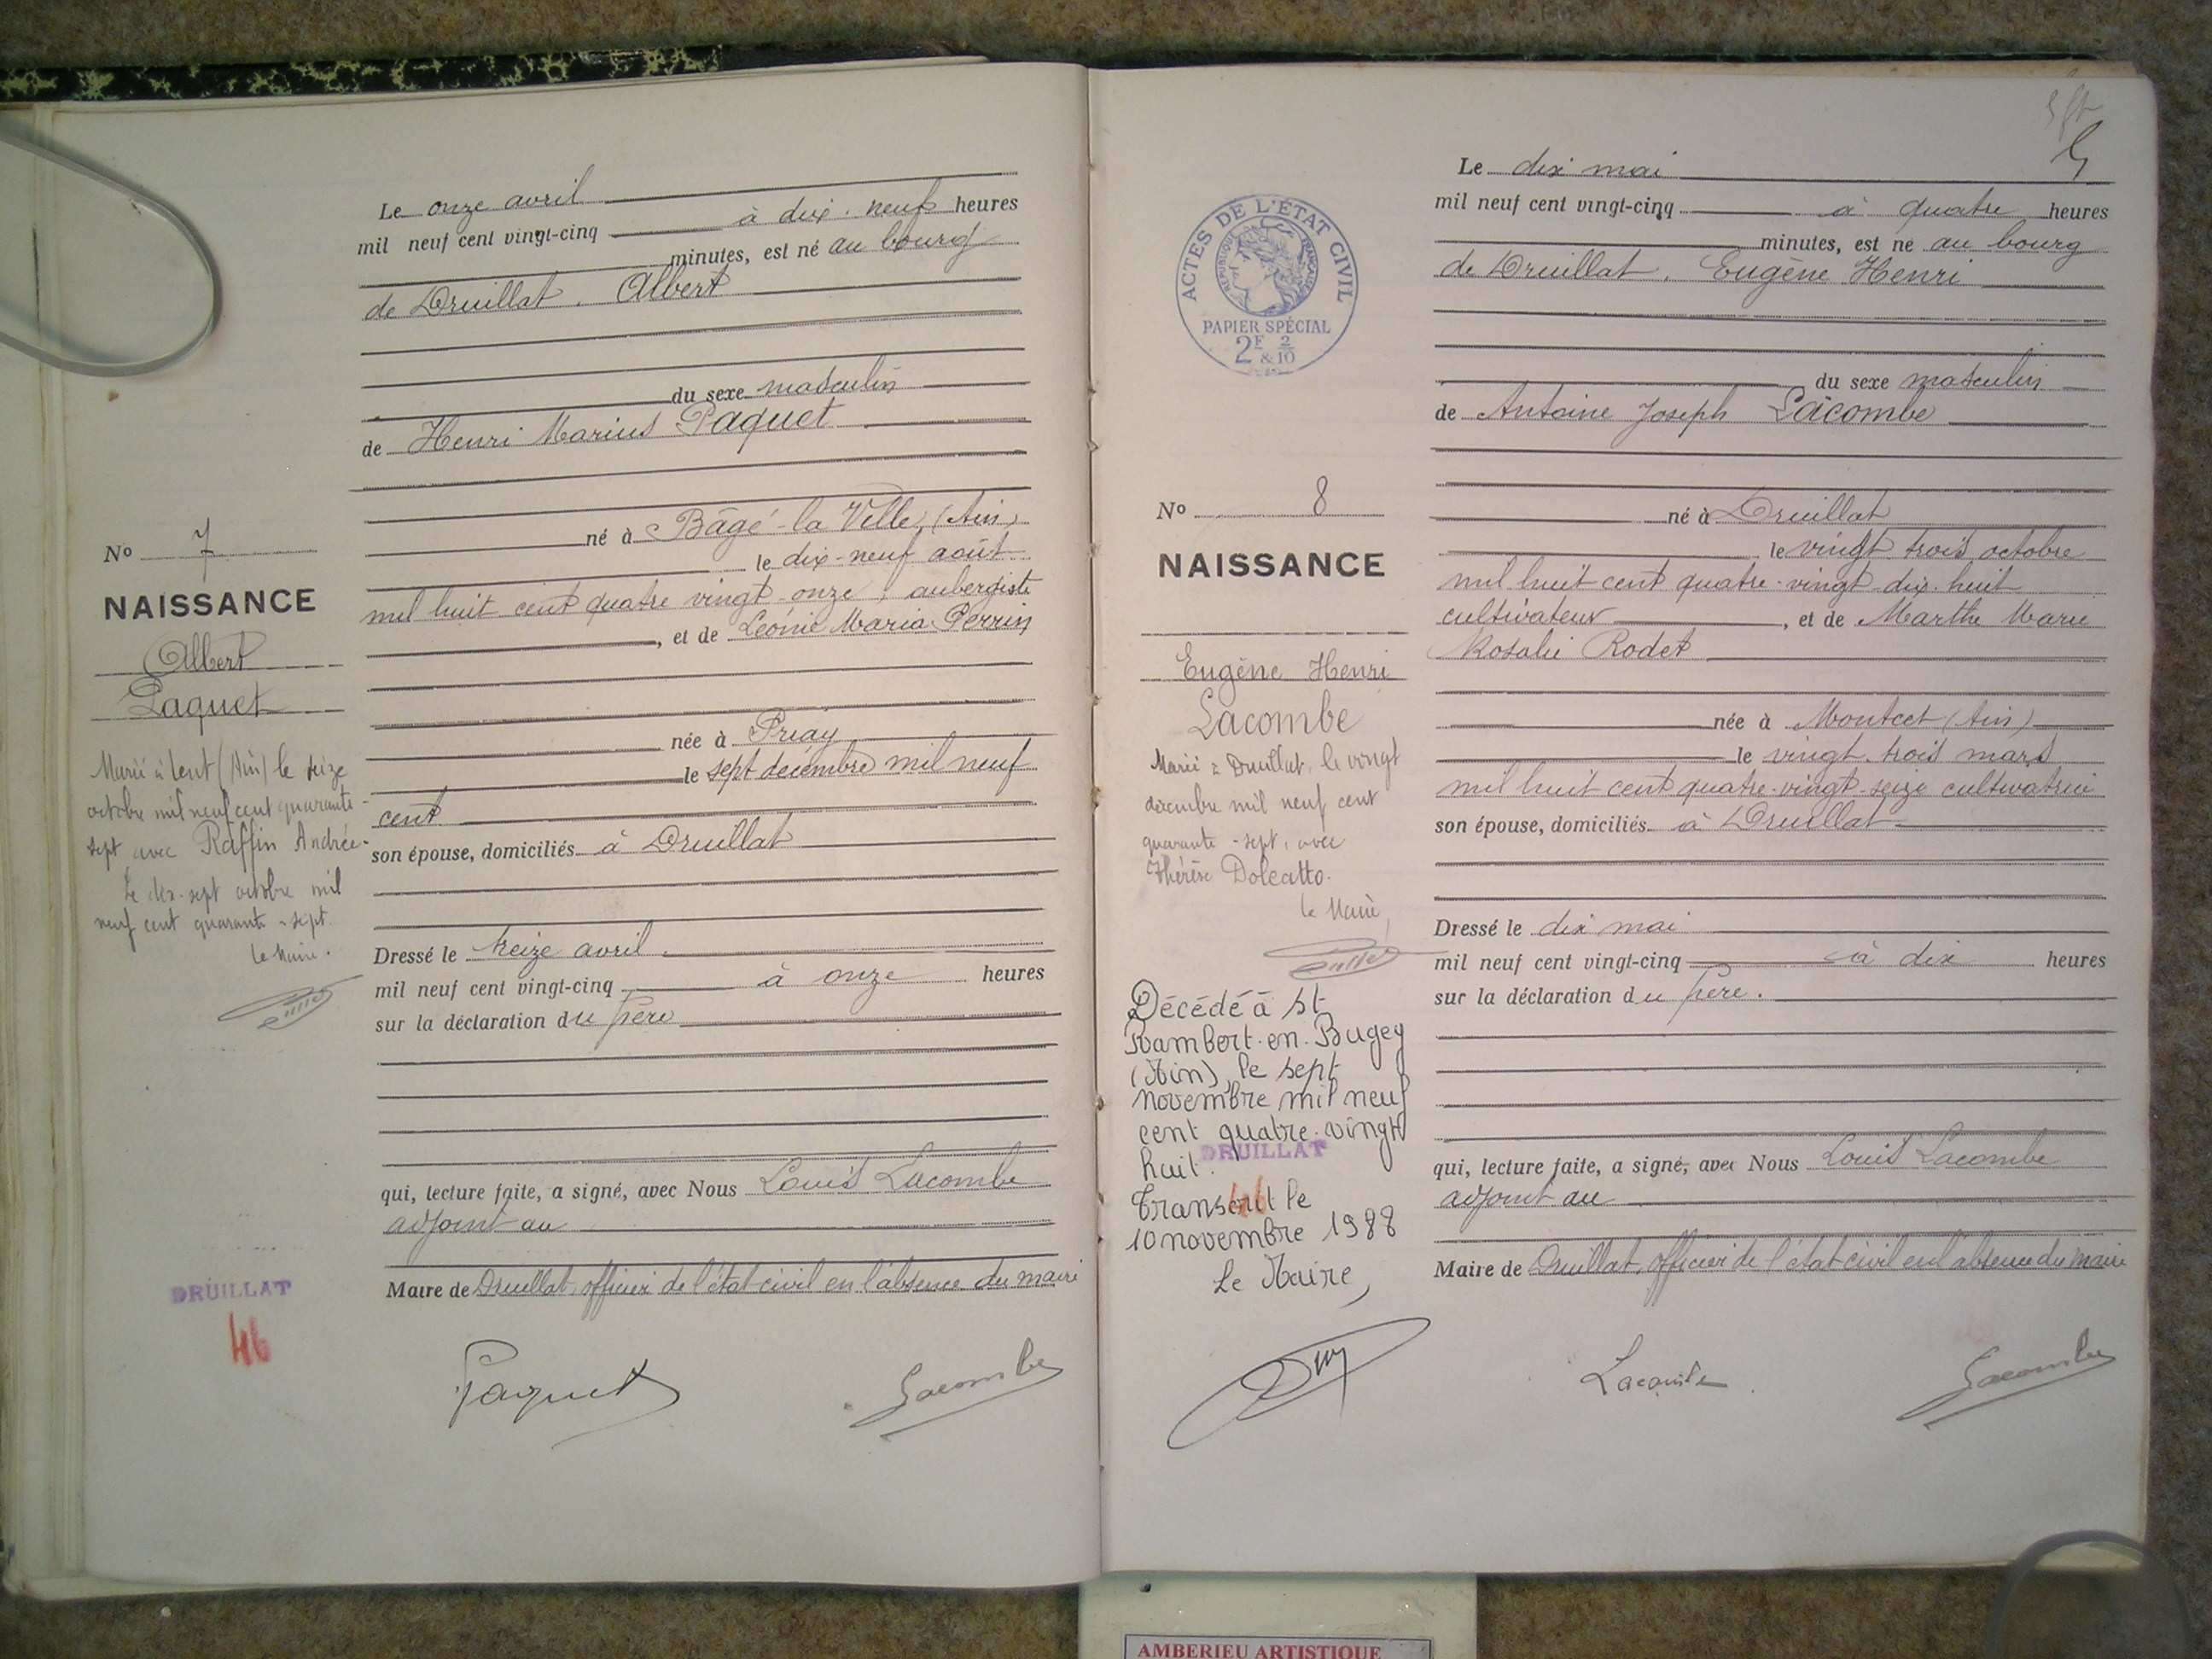 Le onze avril
mil neuf cent vingt-cinq à dix-neuf heures
minutes, est né au bourg
de Druillat. Albert
du sexe masculin
de Henri Marius Paquet
né à Bâgé-la Ville, (Ain)
le dix-neuf août
mil huit cent quatre vingt-onze, aubergiste
, et de Léonie Maria Perrin
née à Priay
le sept décembre mil neuf
cent
son épouse, domiciliés à Druillat
Dressé le treize avril
mil neuf cent vingt-cinq à onze heures
sur la déclaration du père
qui, lecture faite, a signé, avec Nous Louis Lacombe
adjoint au
Maire de Druillat, officier de l'état civil en l'absence du maire
Paquet
Lacombe
No 7
NAISSANCE
Albert
Paquet
Marié à Lent (Ain) le seize
octobre mil neuf cent quarante-
sept avec Raffin Andrée.
Le dix-sept octobre mil
neuf cent quarante-sept.
Le Maire.
DRUILLAT
46
5
ACTES DE L'ÉTAT CIVIL
RÉPUBLIQUE FRANÇAISE
PAPIER SPÉCIAL
2F & 2/10
No 8
NAISSANCE
Eugène Henri
Lacombe
Marié à Druillat, le vingt
décembre mil neuf cent
quarante-sept, avec
Thérèse Dolcatto.
Le Maire,
Décédé à St
Rambert-en-Bugey
(Ain), le sept
novembre mil neuf
cent quatre-vingt
huit.
DRUILLAT
46
Transcrit le
10 novembre 1988
Le Maire,
Le dix mai
mil neuf cent vingt-cinq à quatre heures
minutes, est né au bourg
de Druillat. Eugène Henri
du sexe masculin
de Antoine Joseph Lacombe
né à Druillat
le vingt trois octobre
mil huit cent quatre-vingt-dix-huit
cultivateur, et de Marthe Marie
Rosalie Rodet
née à Montcet (Ain)
le vingt-trois mars
mil huit cent quatre-vingt-seize cultivatrice
son épouse, domiciliés à Druillat
Dressé le dix mai
mil neuf cent vingt-cinq à dix heures
sur la déclaration du père.
qui, lecture faite, a signé, avec Nous Louis Lacombe
adjoint au
Maire de Druillat, officier de l'état civil en l'absence du maire
Lacombe
Lacombe
AMBERIEU ARTISTIQUE